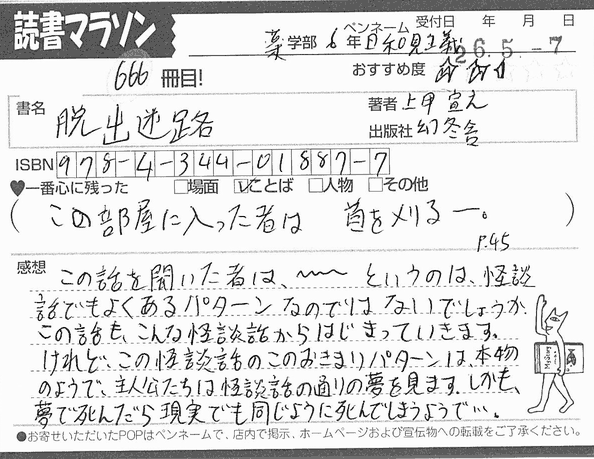 読書マラソン
ペンネーム 受付日 年 月 日
薬学部 6年 日和見主義 26.5-7
666冊目! おすすめ度 ☆☆☆
書名 脱出迷路
著者 上甲宣之
出版社 幻冬舎
ISBN 978-4-344-01887-7
♥一番心に残った □場面 ☑ことば □人物 □その他
(この部屋に入った者は 首を刈るー。)
P.45
感想
この話を聞いた者は、〜〜 というのは、怪談
話でもよくあるパターンなのではないでしょうか。
この話も、こんな怪談話からはじまっていきます。
けれど、この怪談話のこのおきまりパターンは、本物
のようで、主人公たちは怪談話の通りの夢を見ます。しかも、
夢で死んだら現実でも同じように死んでしまうようで…。
●お寄せいただいたPOPはペンネームで、店内で掲示、ホームページおよび宣伝物への転載をご了承ください。